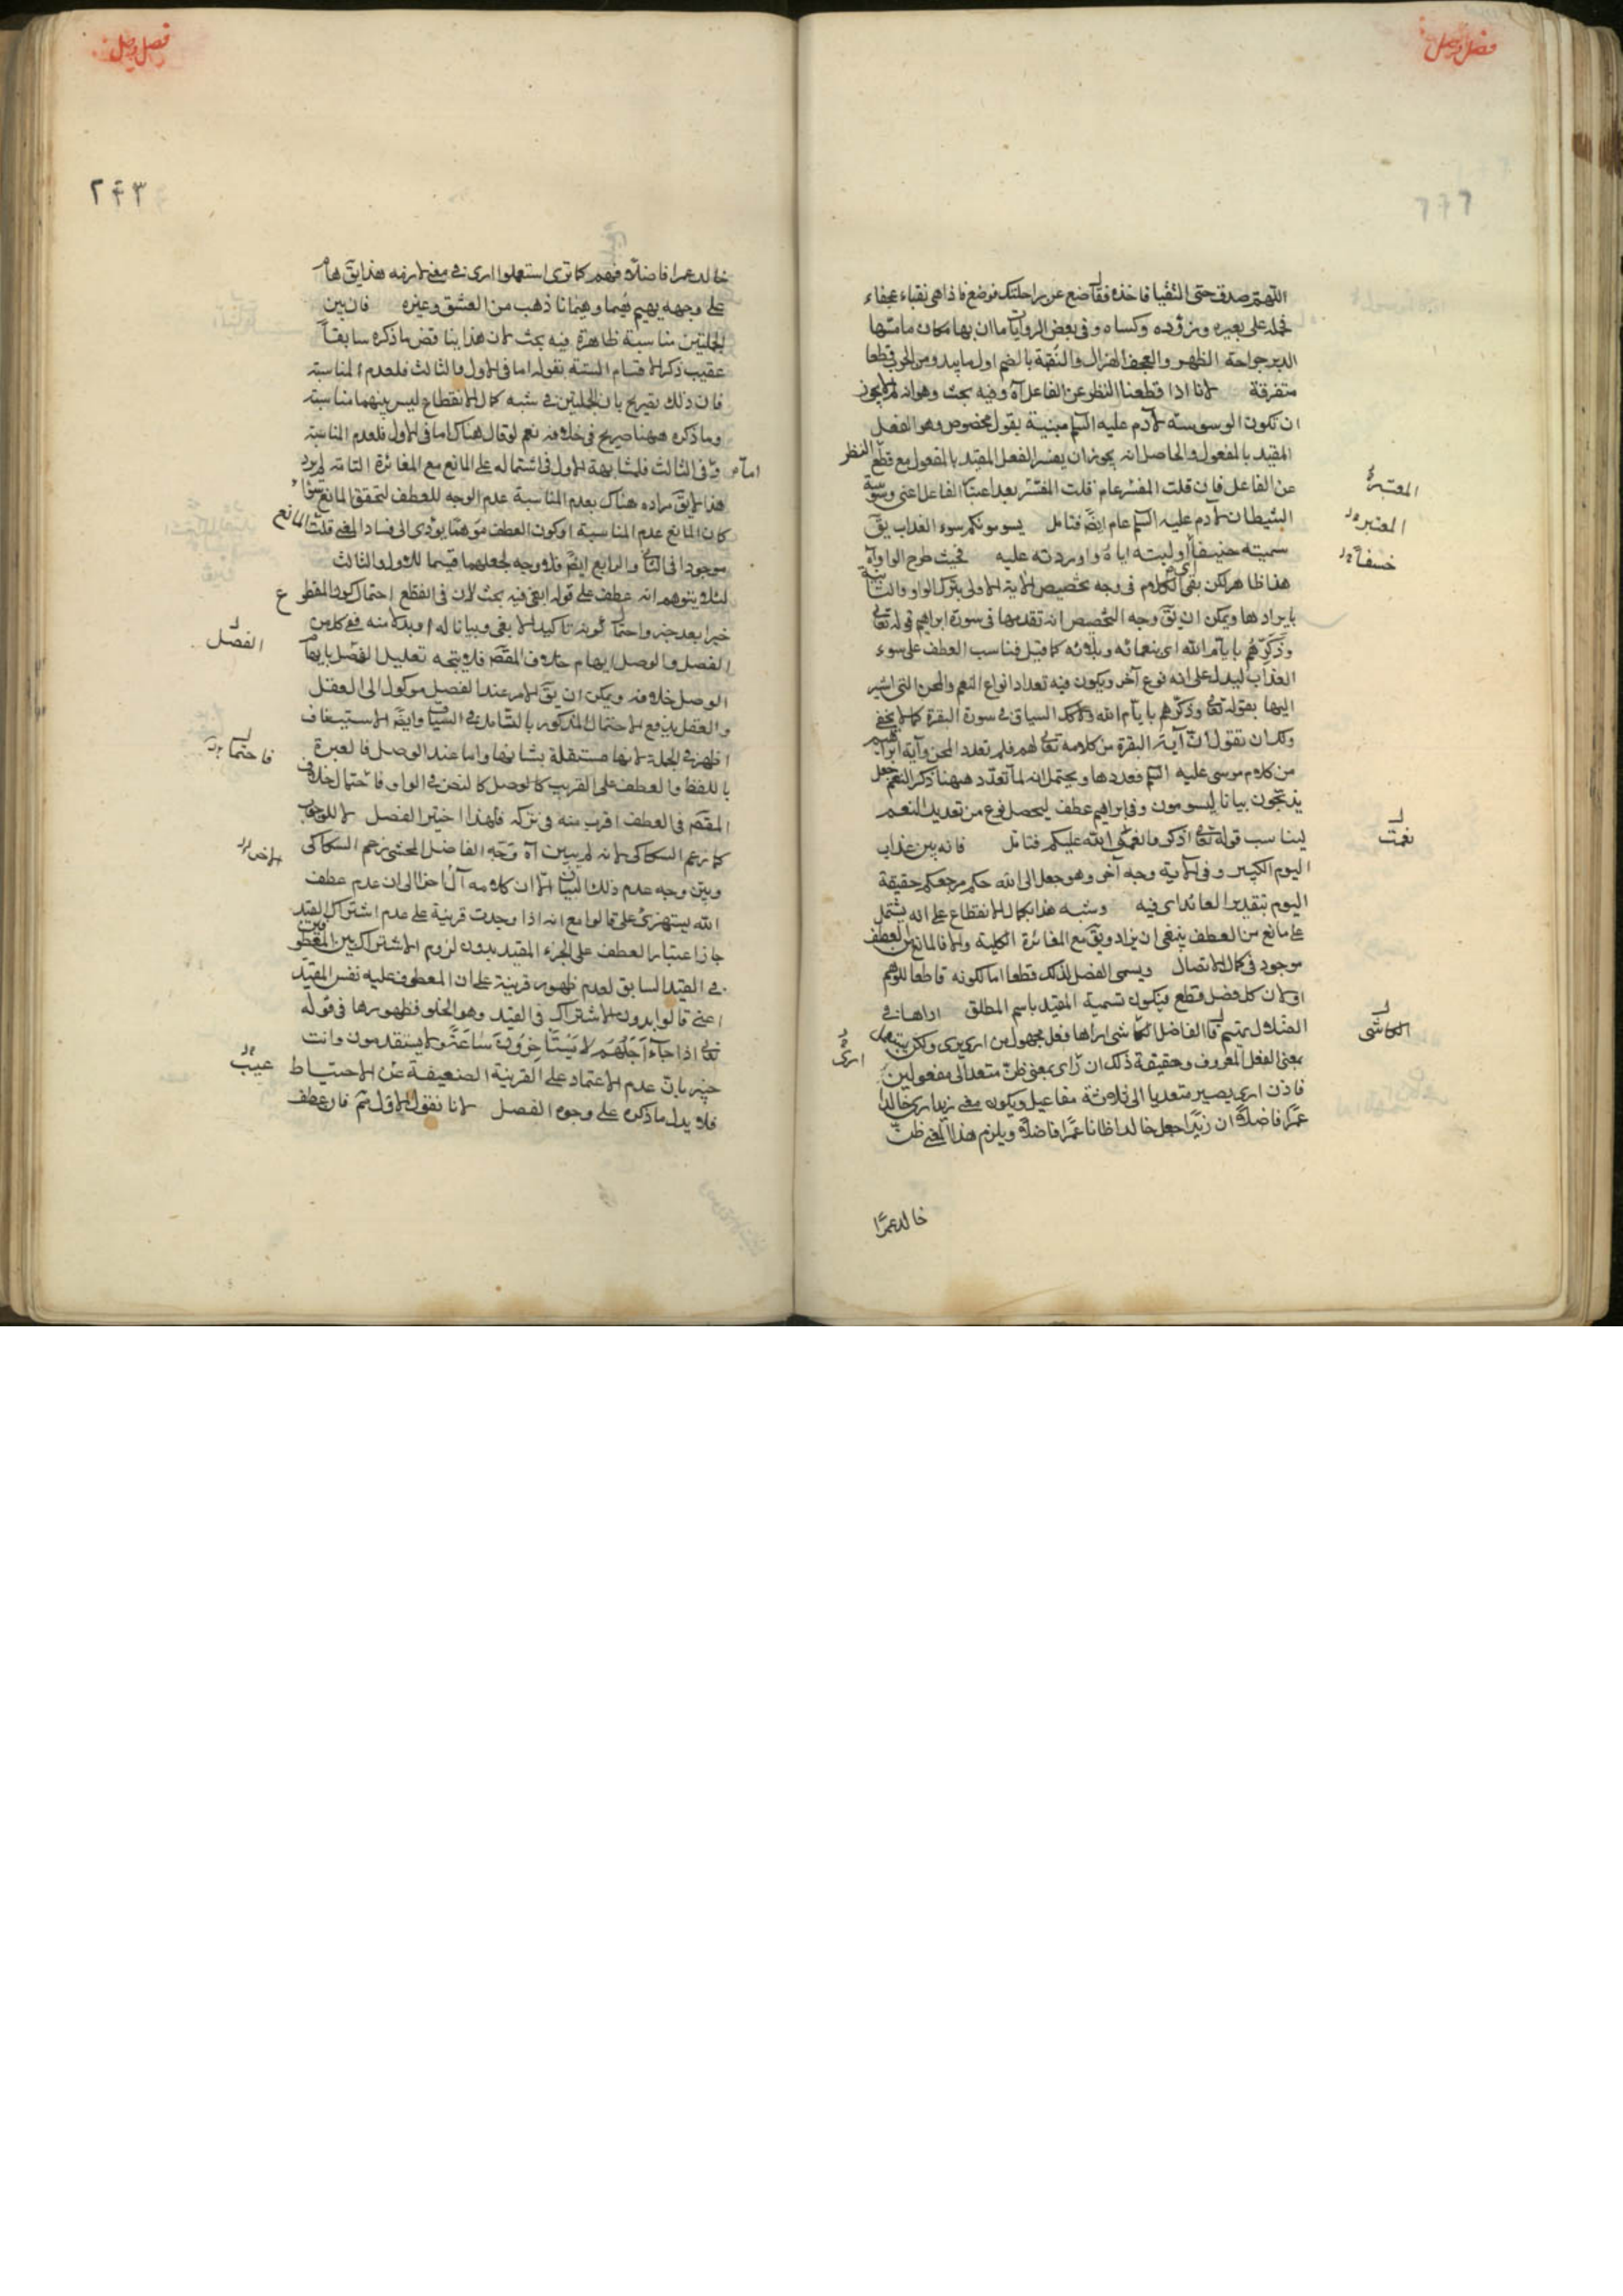 فصل وصل
اللهم صدق حتى التقيا فاخذه فقال ضع عن راحلتك فوضع فاذا هي نقباء عجفاء
فحمله على بعيره وزوده وكساه وفي بعض الروايات ما ان بها مكان ما مسها
الدبر جراحة الظهر والعجف الهزال والنقبة بالضم اول ما يبدو من الجرب قطعا
متفرقة لانا اذا قطعنا النظر عن الفاعل آه وفيه بحث وهو انه لم لا يجوز
ان تكون الوسوسة لآدم عليه السلم مبنية بقول مخصوص وهو الفعل
المقيد بالمفعول والحاصل انه يجوز ان يفسر الفعل المقيد بالمفعول مع قطع النظر
عن الفاعل فان قلت المفسر عام قلت المفسر بعد اعتبار الفاعل اعني وسوسة
الشيطان لآدم عليه السلم عام ايضا فتامل يسومونكم سوء العذاب يق
سميته خسفا اوليته اياه واوردته عليه فحيث طرح الواو آه
هذا ظاهر لكن بقي الكلام في وجه تخصيص الآية الاولى بترك الواو والثانية
بايرادها ويمكن ان يق وجه التخصيص انه تقدمها في سورة ابراهيم قوله تعالى
وذكرهم بايام الله اي بنعمائه وبلائه كما قيل فناسب العطف على سوء
العذاب ليدل على انه نوع آخر ويكون فيه تعداد انواع النعم والمحن التي اشير
اليها بقوله تعالى وذكرهم بايام الله ولا كذلك السياق في سورة البقرة كما لا يخفى
ولك ان تقول ان آية البقرة من كلامه تعالى لهم فلم تعدد المحن وآية ابراهيم
من كلام موسى عليه السلم فعددها ويحتمل انه لما تعدد ههنا ذكر النعم جعل
يذبحون بيانا ليسومون وفي ابراهيم عطف ليحصل نوع من تعديد النعم
ليناسب قوله تعالى اذكروا نعمة الله عليكم فتامل فانه بين عذاب
اليوم الكبير وفي الآية وجه آخر وهو جعل الى الله حكم مرجعكم حقيقة
اليوم بتقدير العائد اي فيه وشبه هذا بكمال الانقطاع على انه يشتمل
على مانع من العطف ينبغي ان يزاد ويق مع المغائرة الكلية والا فالمانع من العطف
موجود في كمال الاتصال ويسمى الفصل لذلك قطعا اما لكونه قاطعا للوهم
او لان كل فصل قطع فيكون تسمية المقيد باسم المطلق اراها في
الضلال تهيم قال الفاضل الكاشي اراها فعل مجهول من ارى يرى ولكن يستعمل
بمعنى الفعل المعروف وحقيقة ذلك ان رأى بمعنى ظن متعد الى مفعولين
فاذن ارى يصير متعديا الى ثلاثة مفاعيل ويكون معنى زيد ارى خالدا
عمرا فاضلا ان زيدا جعل خالدا ظانا عمرا فاضلا ويلزم هذا المعنى ظن
خالد عمرا
المعتبرة
المعتبر
خسفا
نعمت
الكاشى
ارى
فصل وصل
٢٤٣
خالد عمرا فاضلا فهم كما ترى استعملوا ارى في معنى لازمه هذا يق هام
على وجهه يهيم هيما وهيمانا ذهب من العشق وغيره فان بين
الجملتين مناسبة ظاهرة فيه بحث لان هذا يناقض ما ذكره سابقا
عقيب ذكر الاقسام الستة بقوله اما في الاول والثالث فلعدم المناسبة
فان ذلك تصريح بان الجملتين في شبه كمال الانقطاع ليس بينهما مناسبة
وما ذكره ههنا صريح في خلافه نعم لو قال هناك اما في الاول فلعدم المناسبة
واما في الثالث فلمشابهة الاول في اشتماله على المانع مع المغائرة التامة لم يرد
هذا لا يق مراده هناك بعدم المناسبة عدم الوجه للعطف لتحقق المانع سواء
كان المانع عدم المناسبة او كون العطف موهما يؤدي الى فساد المعنى قلت المانع
موجود في الثاني والرابع ايضا فلا وجه لجعلهما قسيما للاول والثالث
لئلا يتوهم انه عطف على قوله ابغي فيه بحث لان في القطع احتمال كون المقطوع
خبرا بعد خبر واحتمال كونه تاكيدا لابغي وبيانا له او بدلا منه ففي كل من
الفصل والوصل ايهام خلاف المقصد فلا يتجه تعليل الفصل بايهام
الوصل خلافه ويمكن ان يق الامر عند الفصل موكول الى العقل
والعقل يدفع الاحتمال المذكور بالتامل في السياق وايضا الاستيناف
اظهر في الجملة لانها مستقلة بشانها واما عند الوصل فالعبرة
باللفظ والعطف على القريب كالوصل كالنص في الواو فاحتمال خلاف
المقصد في العطف اقرب منه في تركه فلهذا اختير الفصل لا للوجوب
كما زعم السكاكي لانه لم يبين آه وجه الفاضل المحشي زعم السكاكي
وبين وجه عدم ذلك البيان الا ان كلامه آل آخرا الى ان عدم عطف
الله يستهزئ على قالوا مع انه اذا وجدت قرينة على عدم اشتراك القيد
جاز اعتبار العطف على الجزء المقيد بدون لزوم الاشتراك بين المعطوفين
في القيد السابق لعدم ظهور قرينة على ان المعطوف عليه نفس المقيد
اعني قالوا بدون الاشتراك في القيد وهو الخلو فظهورها في قوله
تعالى اذا جاء اجلهم لا يستأخرون ساعة ولا يستقدمون وانت
خبير بان عدم الاعتماد على القرينة الضعيفة عن الاحتياط
فلا يدل ما ذكره على وجوب الفصل لانا نقول الاول ثم فان عطف
الفصل
فاحتمال